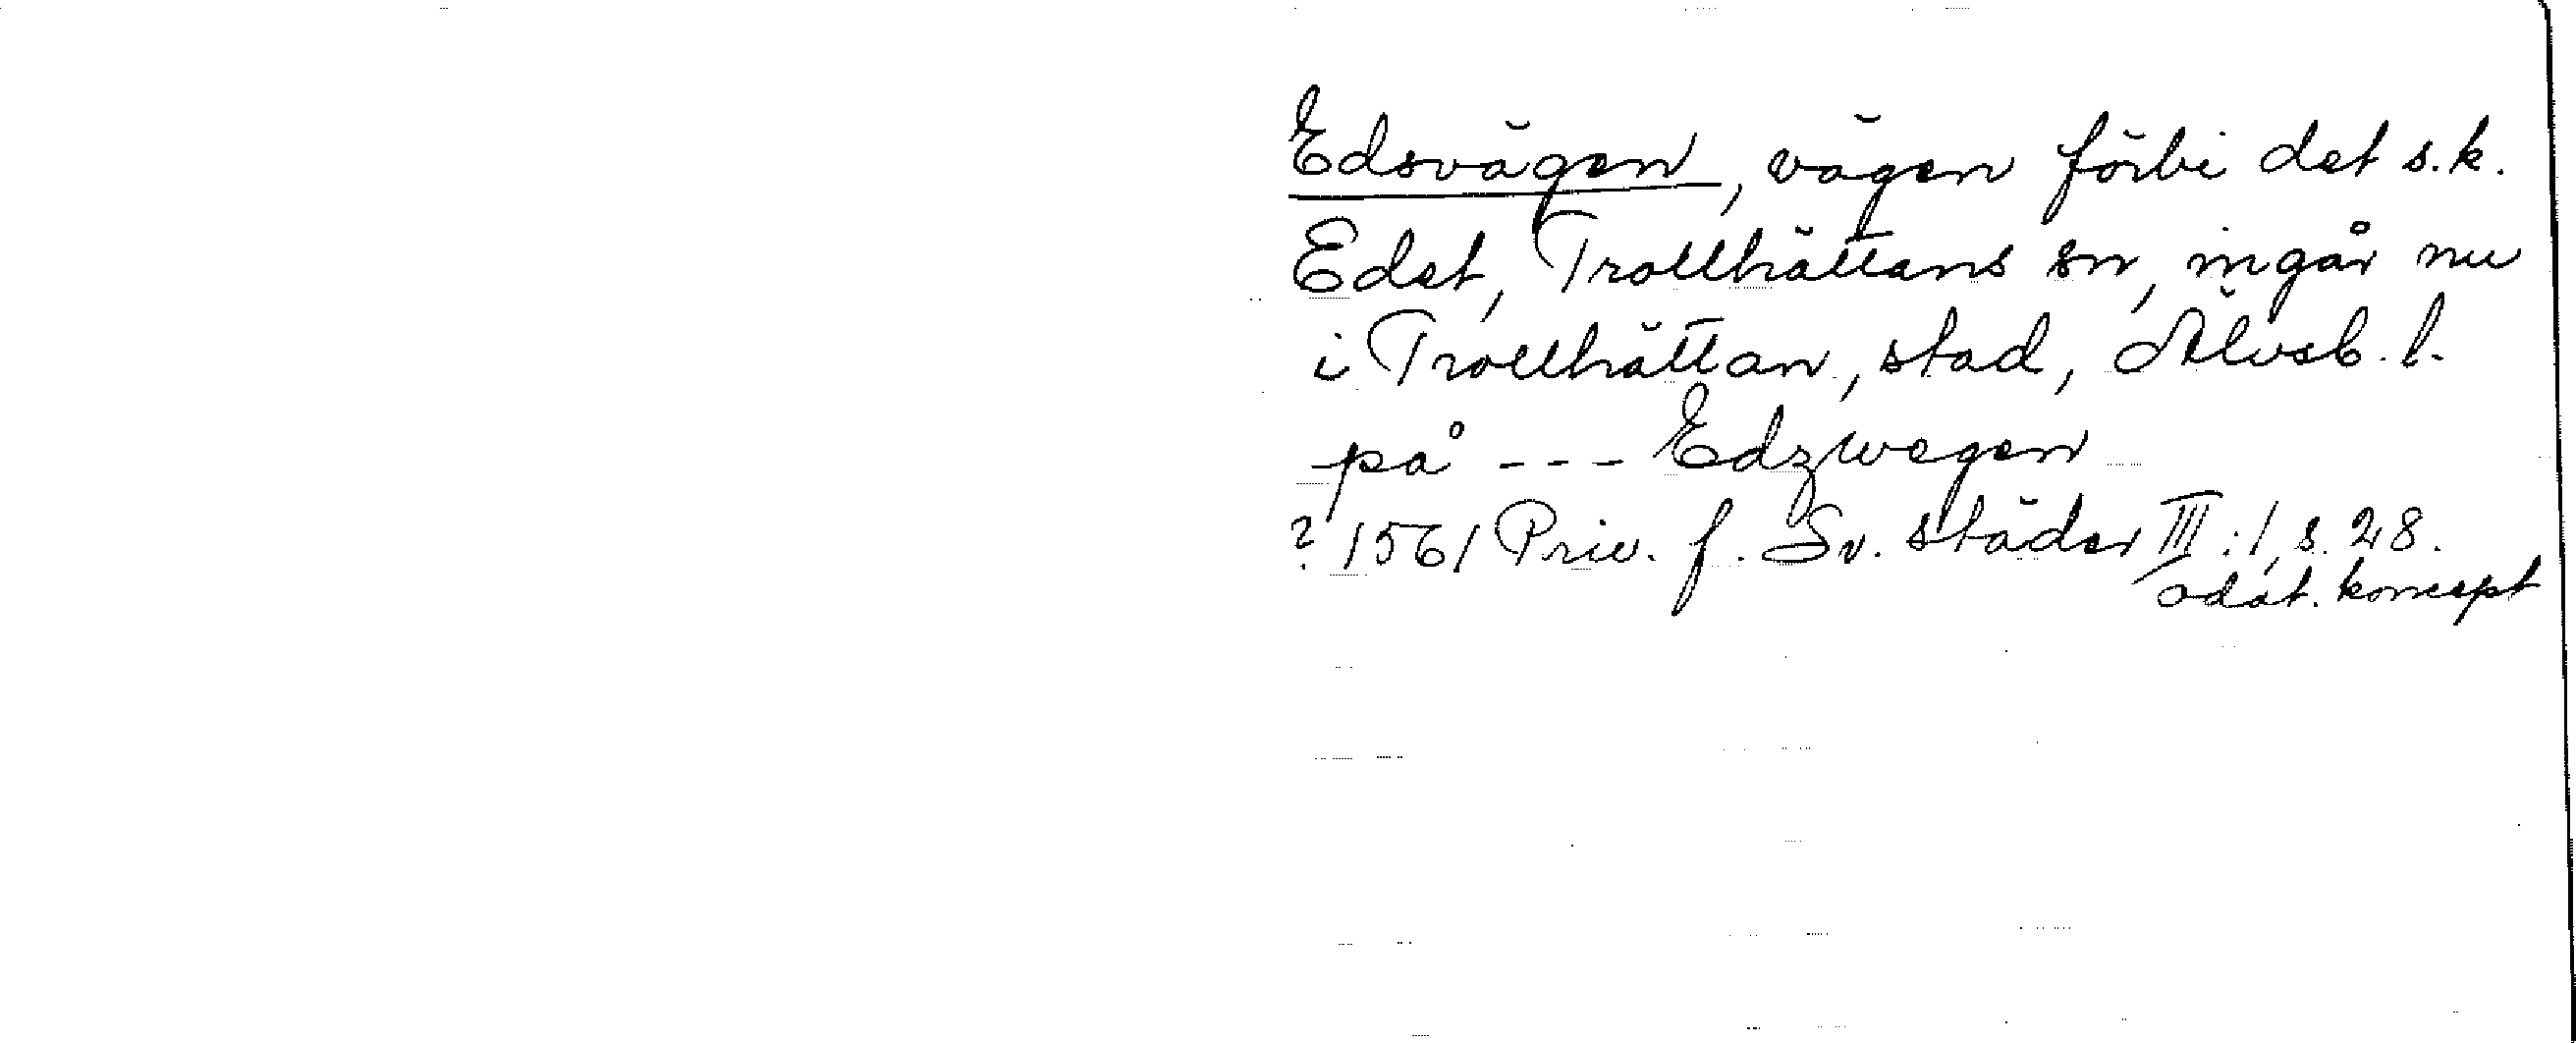 Edsvägen, vägen förbi det s.k.
Edet, Trollhättans sn, ingår nu
i Trollhättan, stad, Älvsb. l.
på --- Edzwegen
? 1561 Priv. f. Sv. städer III:1, s. 28.
odat. koncept